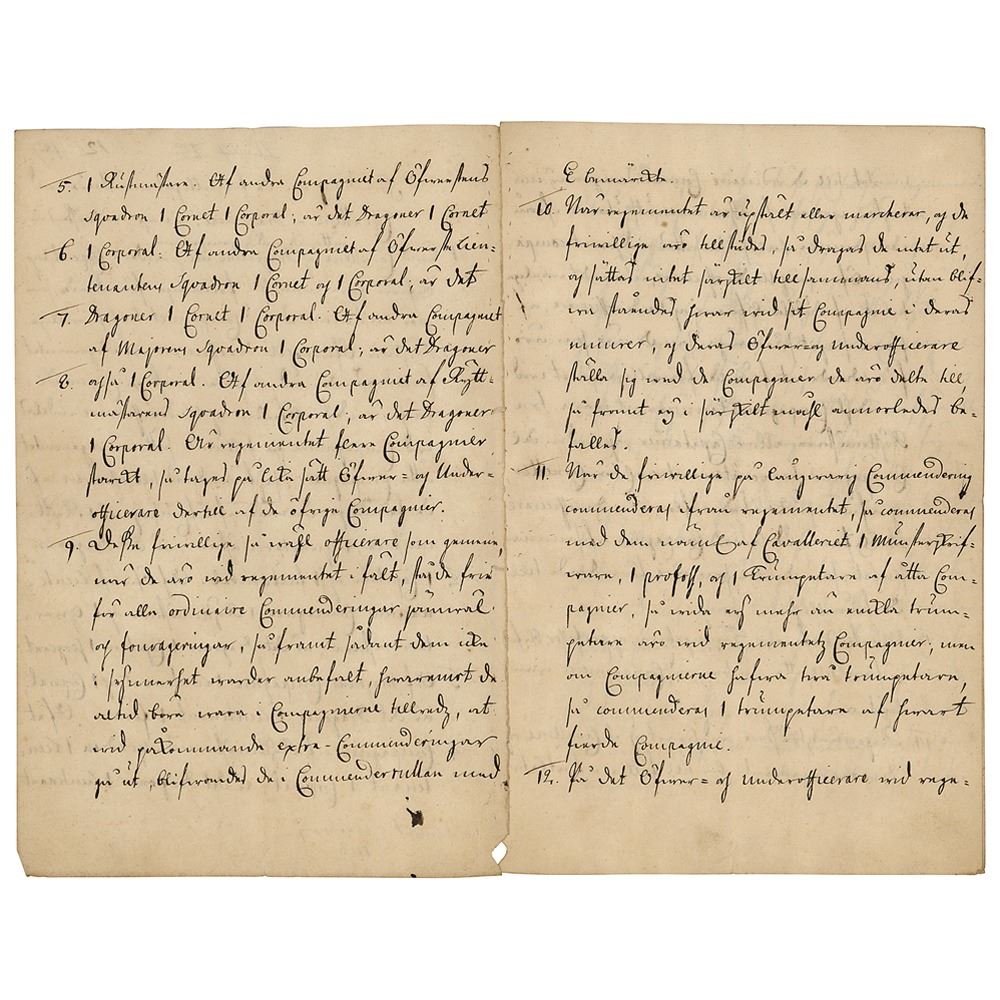 5. 1 Rustmästare. Af andra Compagniet af Öfwerstens
Sqvadron 1 Cornet 1 Corporal; är det Dragoner 1 Cornet
6. 1 Corporal. Af andra Compagniet af Öfwerste Lieu=
tenantens Sqvadron 1 Cornet og 1 Corporal; är det
7. Dragoner 1 Cornet 1 Corporal. Af andra Compagniet
af Majorens Sqvadron 1 Corporal; är det Dragoner
8. också 1 Corporal. Af andra Compagniet af Rytt=
mästarens Sqvadron 1 Corporal; är det Dragoner
1 Corporal. Är regementet flere Compagnier
starckt, så tages på lika sätt Öfwer= og Under=
officerare dertill af de öfrige Compagnier.
9. Desse friwillige så wähl officerare som gemene,
när de äro wid regementet i fält, stå de frie
för alla ordinaire Commenderingar
og fourageringar, så framt sådant dem icke
i synnerhet warder anbefalt, hwaremot de
altid böra wara i Compagnierne tillredz, at
wid påkommande extra-Commenderingar
gå ut, blifwandes de i Commenderrullan med
E bemärckte.
10. När regementet är upstält eller marcherar, og de
friwillige äro tillstädes, så dragas de intet ut,
og sättas intet särskilt tillsammans, utan blif=
wa ståendes hwar wid sit Compagnie i deras
nummer, og deras Öfwer= og underofficerare
ställa sig wed de Compagnier de äro delte till,
så framt ey i särskilt måhl annorledes be=
falles.
11. När de friwillige på langwarig Commendering
commenderas ifrån regementet, så commenderas
med dem af Cavalleriet 1 Mönsterskrif=
ware, 1 profoss, og 1 Trumpetare af åtta Com=
pagnier, så wida ey mehr än enckla trum=
petare äro wid regementetz Compagnier; men
om Compagnierne hafwa twå trumpetare,
så commenderas 1 trumpetare af hwart
fierde Compagnie.
12. På det Öfwer= og underofficerare wid rege=